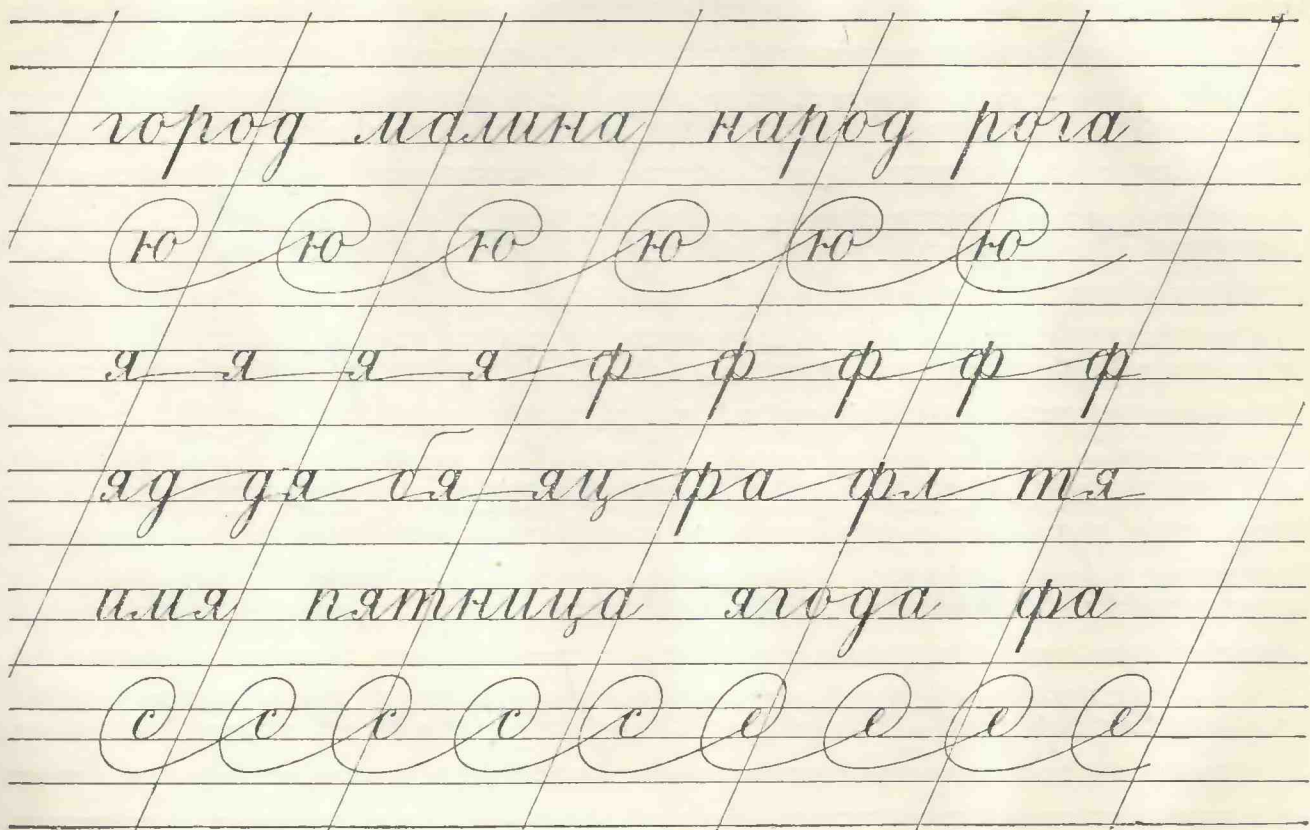 город малина народ рога
ю ю ю ю ю ю
я я я я ф ф ф ф ф
яд дя бя яц фа фл тя
имя пятница ягода фа
с с с с с е е е е